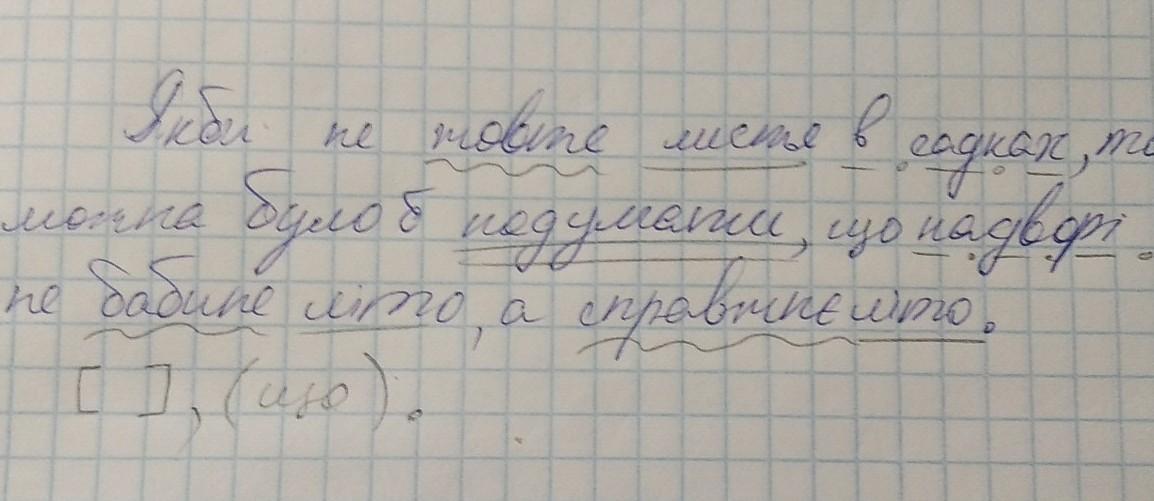 Якби не жовте листя в садках, то
можна було б подумати, що надворі
не бабине літо, а справжнє літо.
[ ], (що).